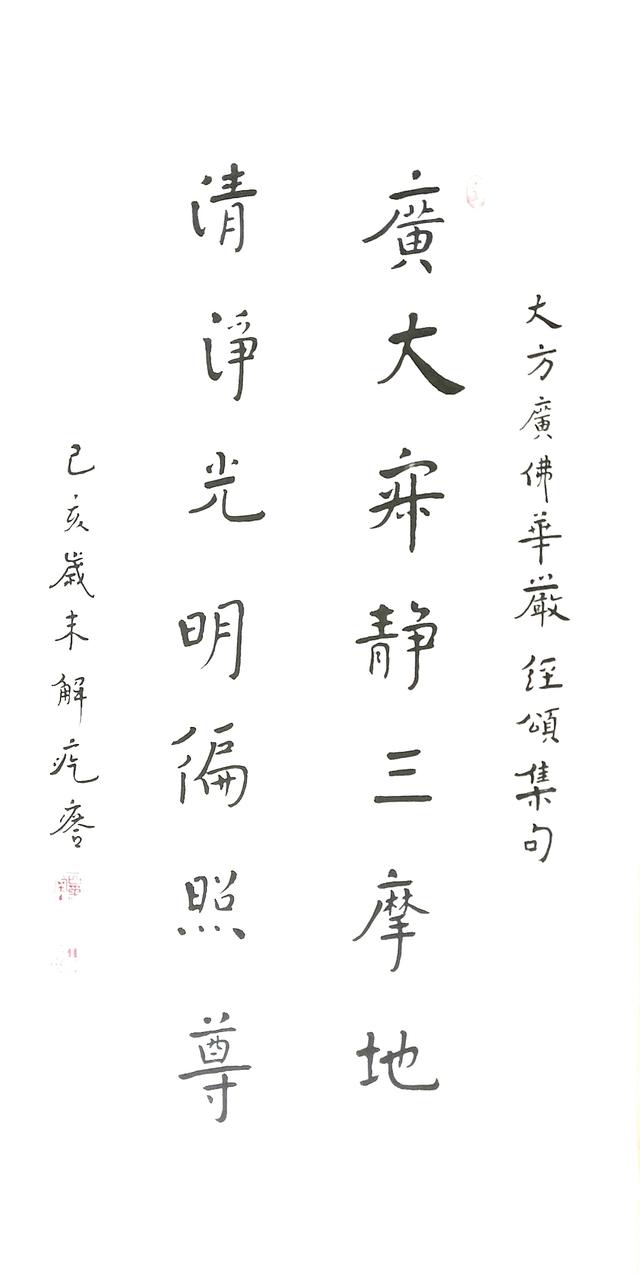 大方廣佛華嚴經頌集句
廣大寂静三摩地
清淨光明徧照尊
己亥歲末解疙瘩